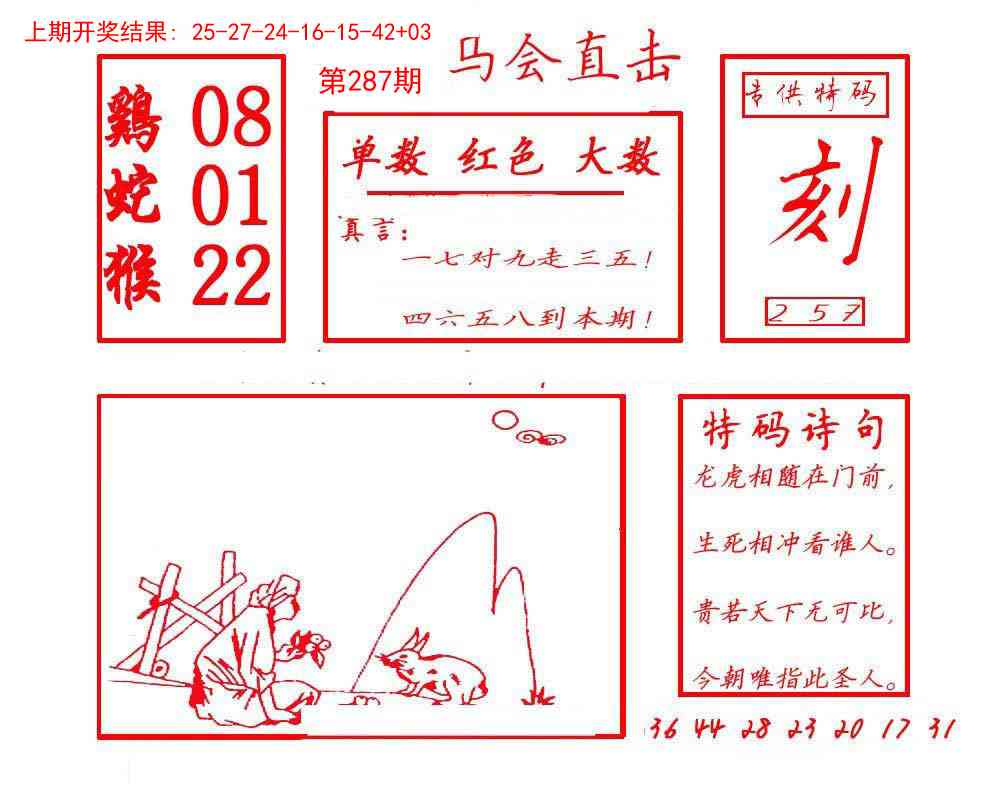 上期开奖结果: 25-27-24-16-15-42+03
第287期
马会直击
鷄 08
蛇 01
猴 22
单数 红色 大数
真言:
一七对九走三五!
四六五八到本期!
专供特码
刻
2 5 7
特码诗句
龙虎相随在门前,
生死相冲看谁人。
贵若天下无可比,
今朝唯指此圣人。
36 44 28 23 20 17 31